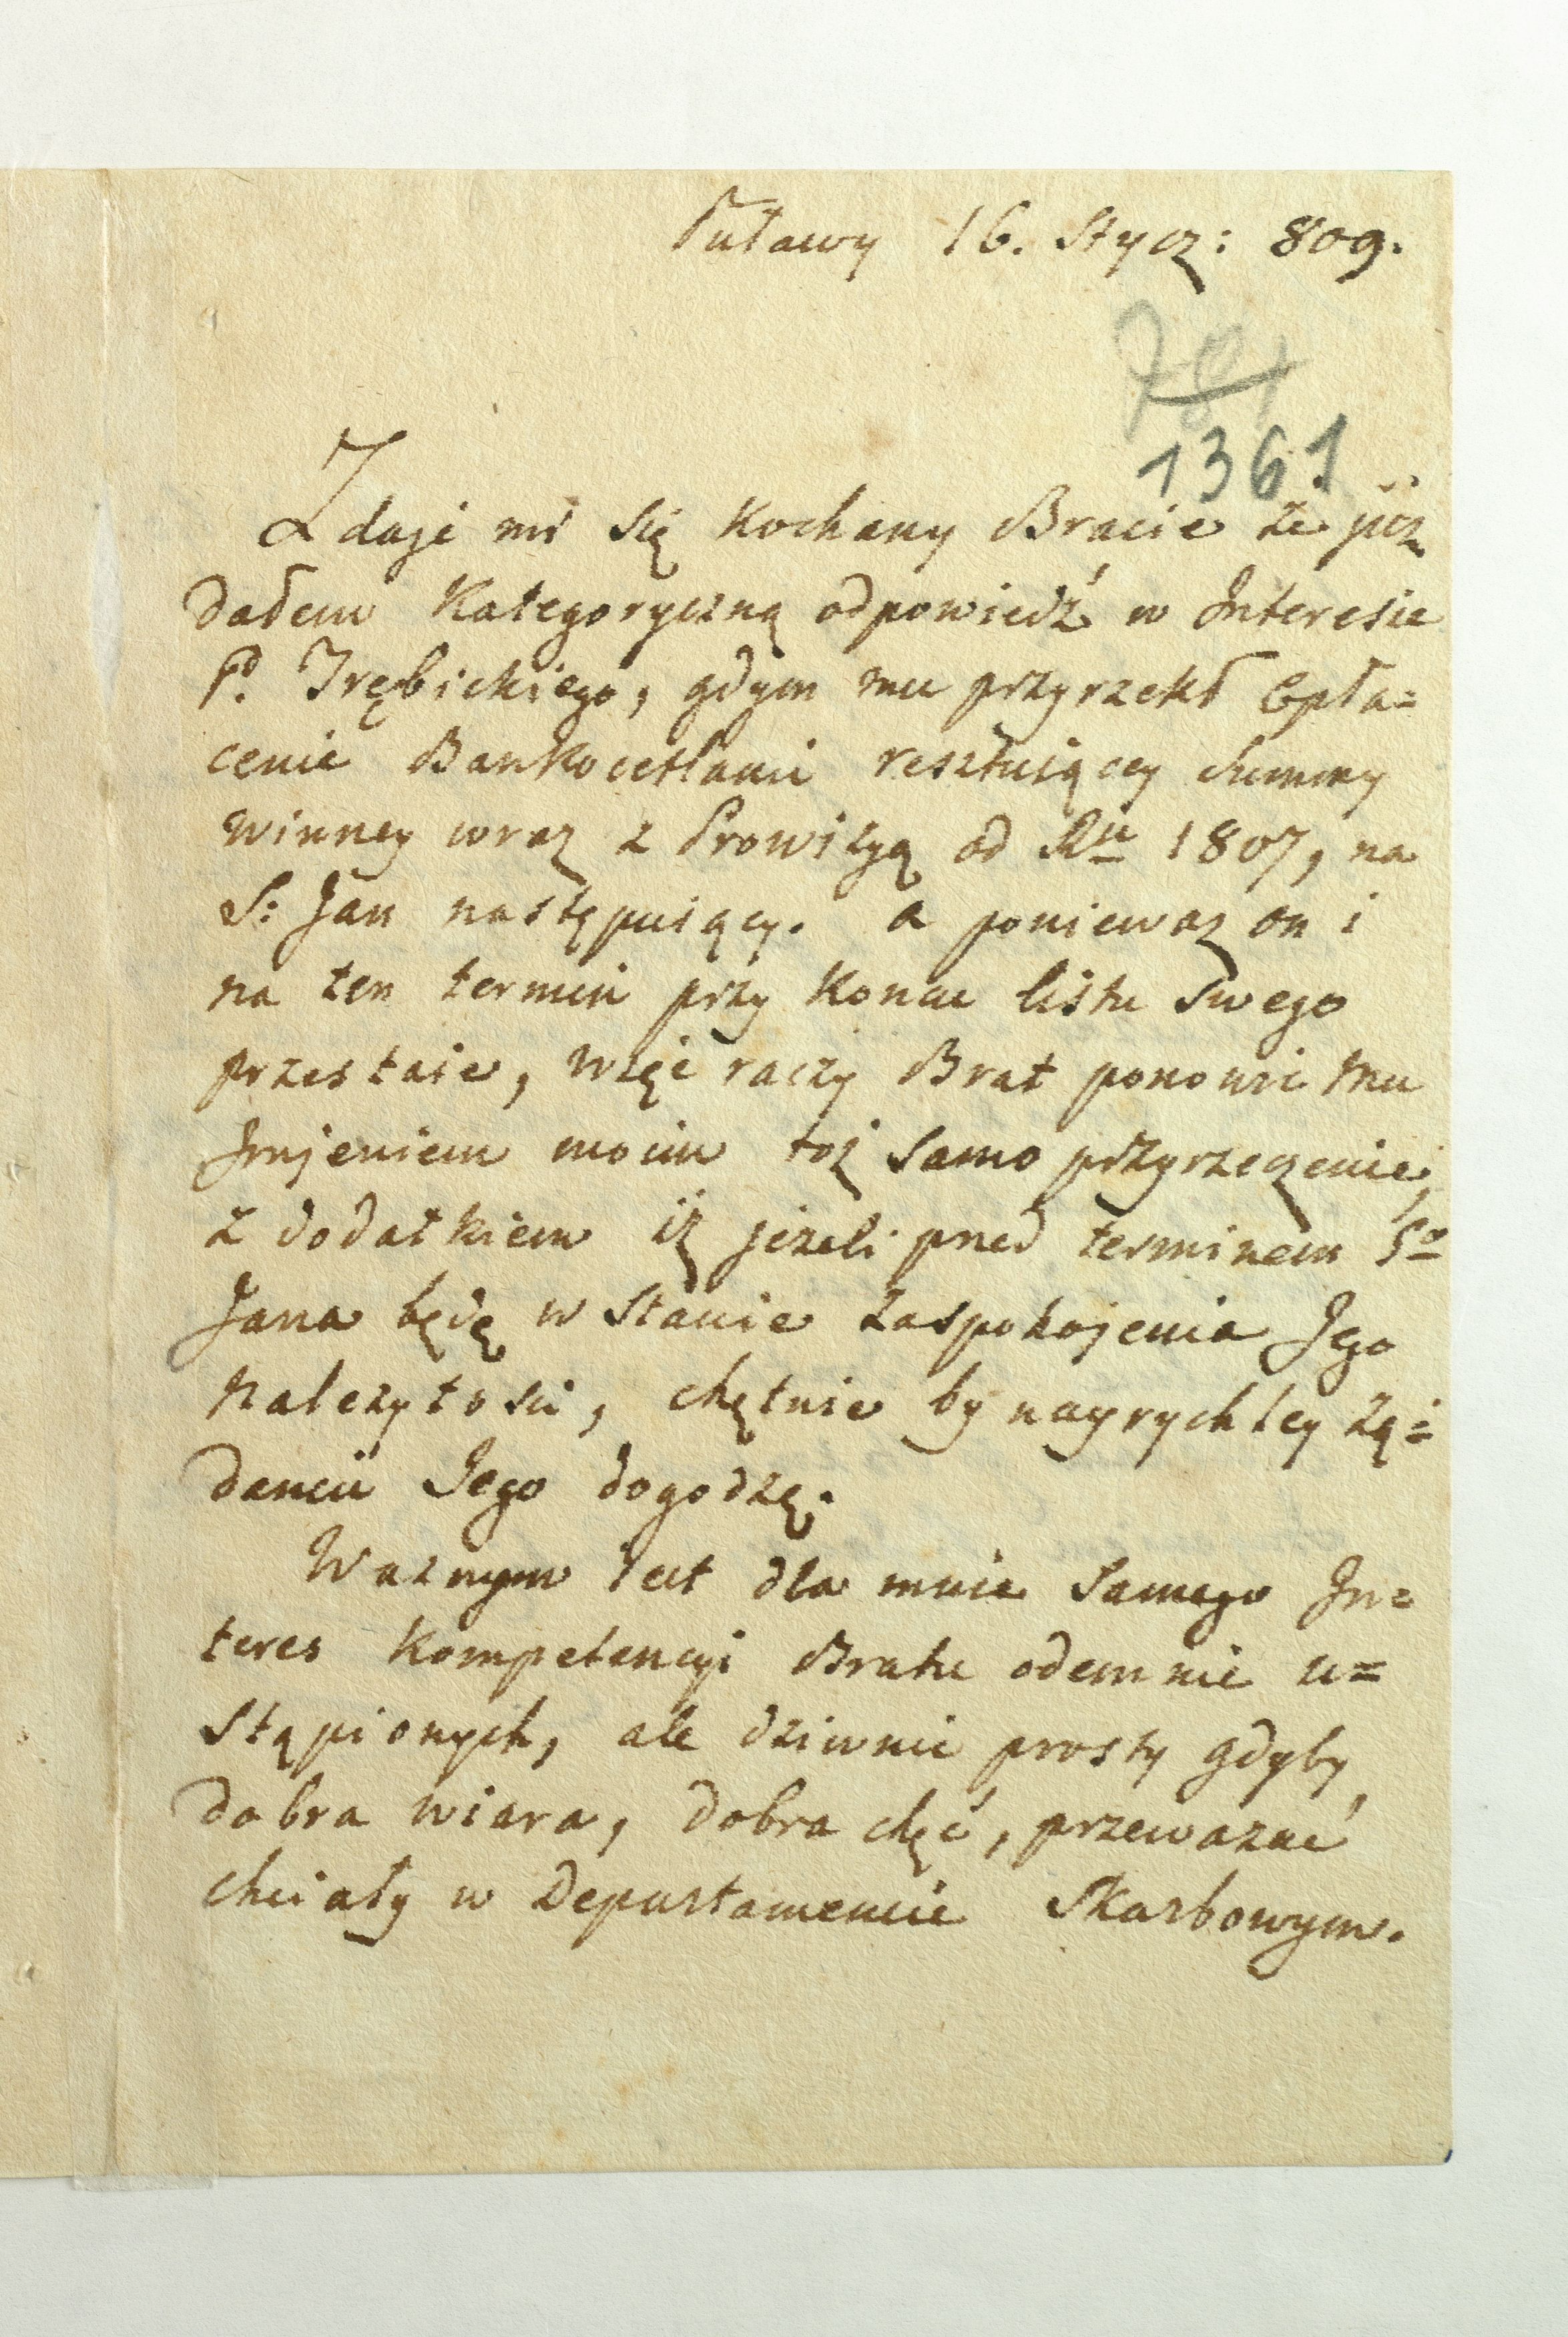 Puławy 16. Stycz: 809.
781
1361
Zdaje mi się Kochany Bracie że już
dałem Kategoryczną odpowiedź w Interesie
P. Trębickiego, gdym mu przyrzekł Opła=
cenie Bankocetlami resztuiącey Summy
winney wraz z Prowizyą od Ru 1807, na
S: Jan następuiący. a ponieważ on i
na ten termin przy koncu listu swego
przestaie, więc raczy Brat ponowić mu
Imjeniem moim toż samo przyrzeczenie,
z dodatkiem iż jeżeli przed terminem So
Jana będę w Stanie zaspokojenia Jego
należytości, chętnie by nayrychley żą=
daniu Jego dogodzę.
Ważnym iest dla mnie samego In=
teres Kompetencyi Bratu odemnie u=
stąpionych, ale dziwnie prosty gdyby
dobra wiara, dobra chęć, przeważać
chciały w Departamencie Skarbowym.